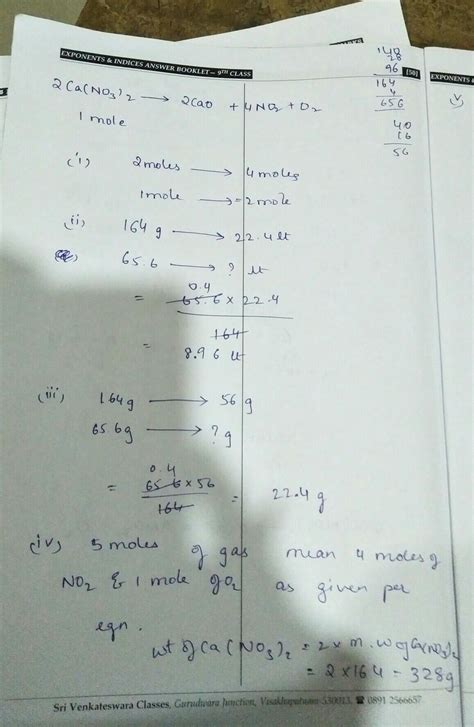 EXPONENTS & INDICES ANSWER BOOKLET – 9TH CLASS
[50]
EXPONENTS &
28
96
164
4
656
40
16
56
v)
2Ca(NO3)2 → 2CaO + 4NO2 + O2
1 mole
(i) 2moles → 4 moles
1mole → = 2 mole
(ii) 164 g → 22.4 lt
65.6 → ? lt
0.4
= 65.6 × 22.4
164
= 8.96 lt
(iii) 164g → 56 g
65.6g → ? g
0.4
= 65.6 × 56 = 22.4 g
164
(iv) 5 moles of gas mean 4 moles of
NO2 & 1 mole of O2 as given per
eqn.
wt of Ca(NO3)2 = 2 × m. W of Ca(NO3)2
= 2 × 164 = 328g
Sri Venkateswara Classes, Gurudwara Junction, Visakhapatnam-530013. ☎ 0891 2566657